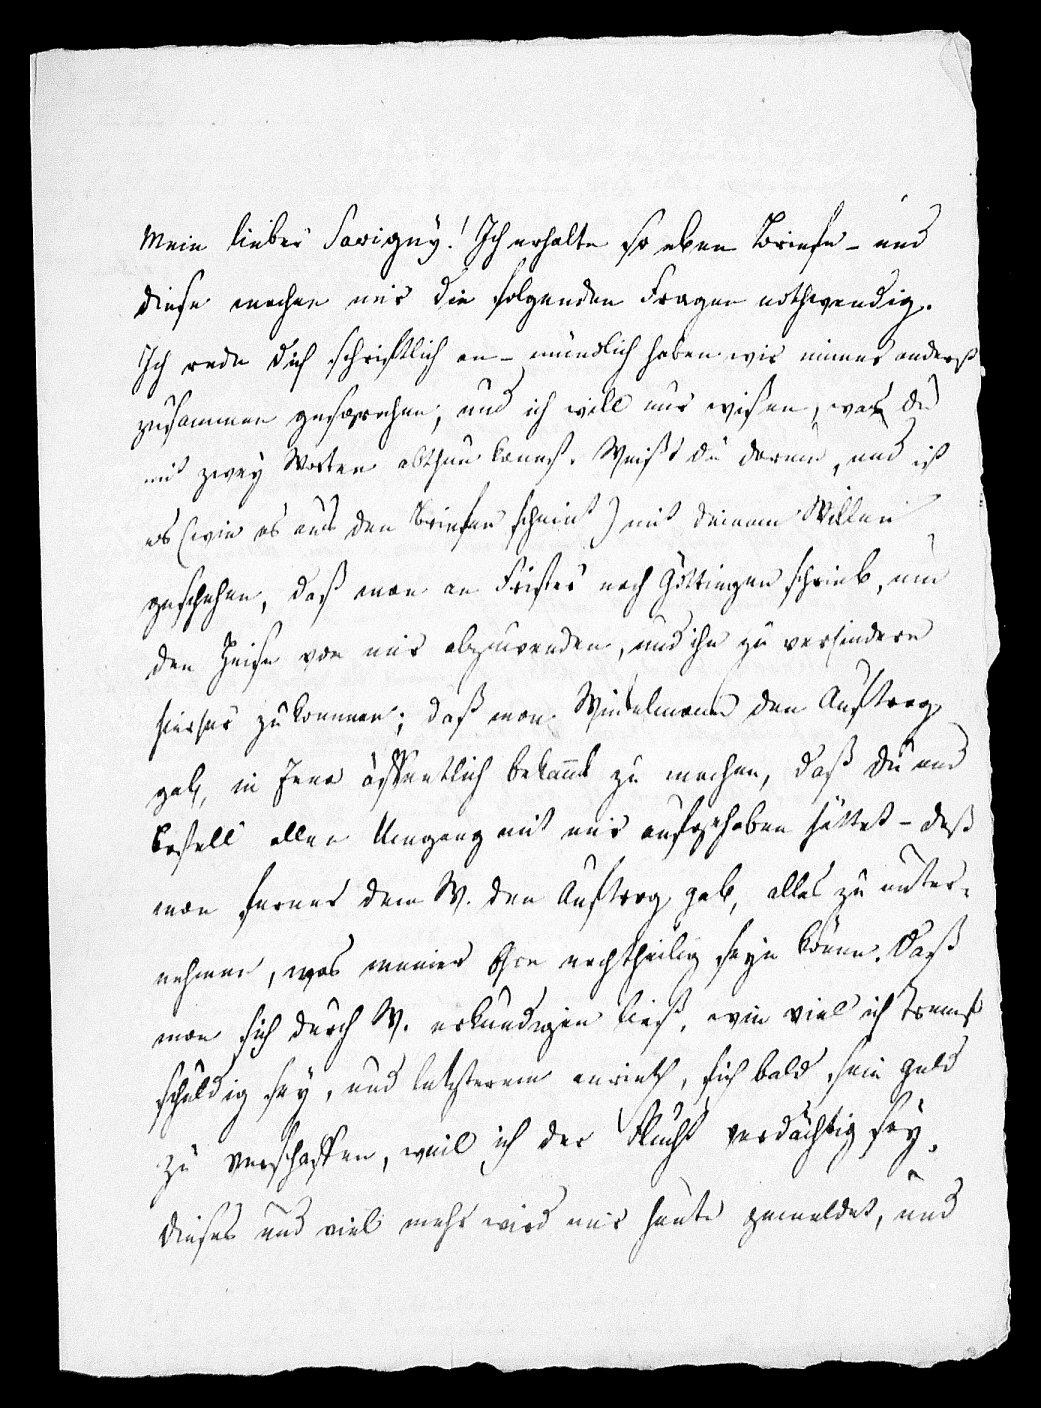 Mein lieber Savigny! Ich erhalte so eben Briefe – und
diese machen mir die folgenden Fragen nothwendig.
Ich rede dich schriftlich an – mündlich haben wir immer anderst
zusammen gesprochen, und ich will nur wissen, was du
mit zwey Worten abthun kannst. Weißt du darum, und ist
es (wie es aus den Briefen scheint) mit deinem Willen
geschehen, daß man an nach Göttingen schrieb, um
den von mir abzuwenden, und ihn zu verhindern
hierher zu kommen; daß man Winkelmann den Auftrag
gab, in Jena öffentlich bekannt zu machen, daß du und
allen Umgang mit mir aufgehoben hättet – daß
man ferner dem W. den Auftrag gab, alles zu unter-
nehmen, was meiner Ehre nachtheilig seyn könne. Daß
man sich durch W. erkundigen ließ, wie viel ich
schuldig sey, und letzterem anrieth, sich bald sein Geld
zu verschaffen, weil ich der Flucht verdächtig sey.
Dieses und viel mehr wird mir heute gemeldet, und